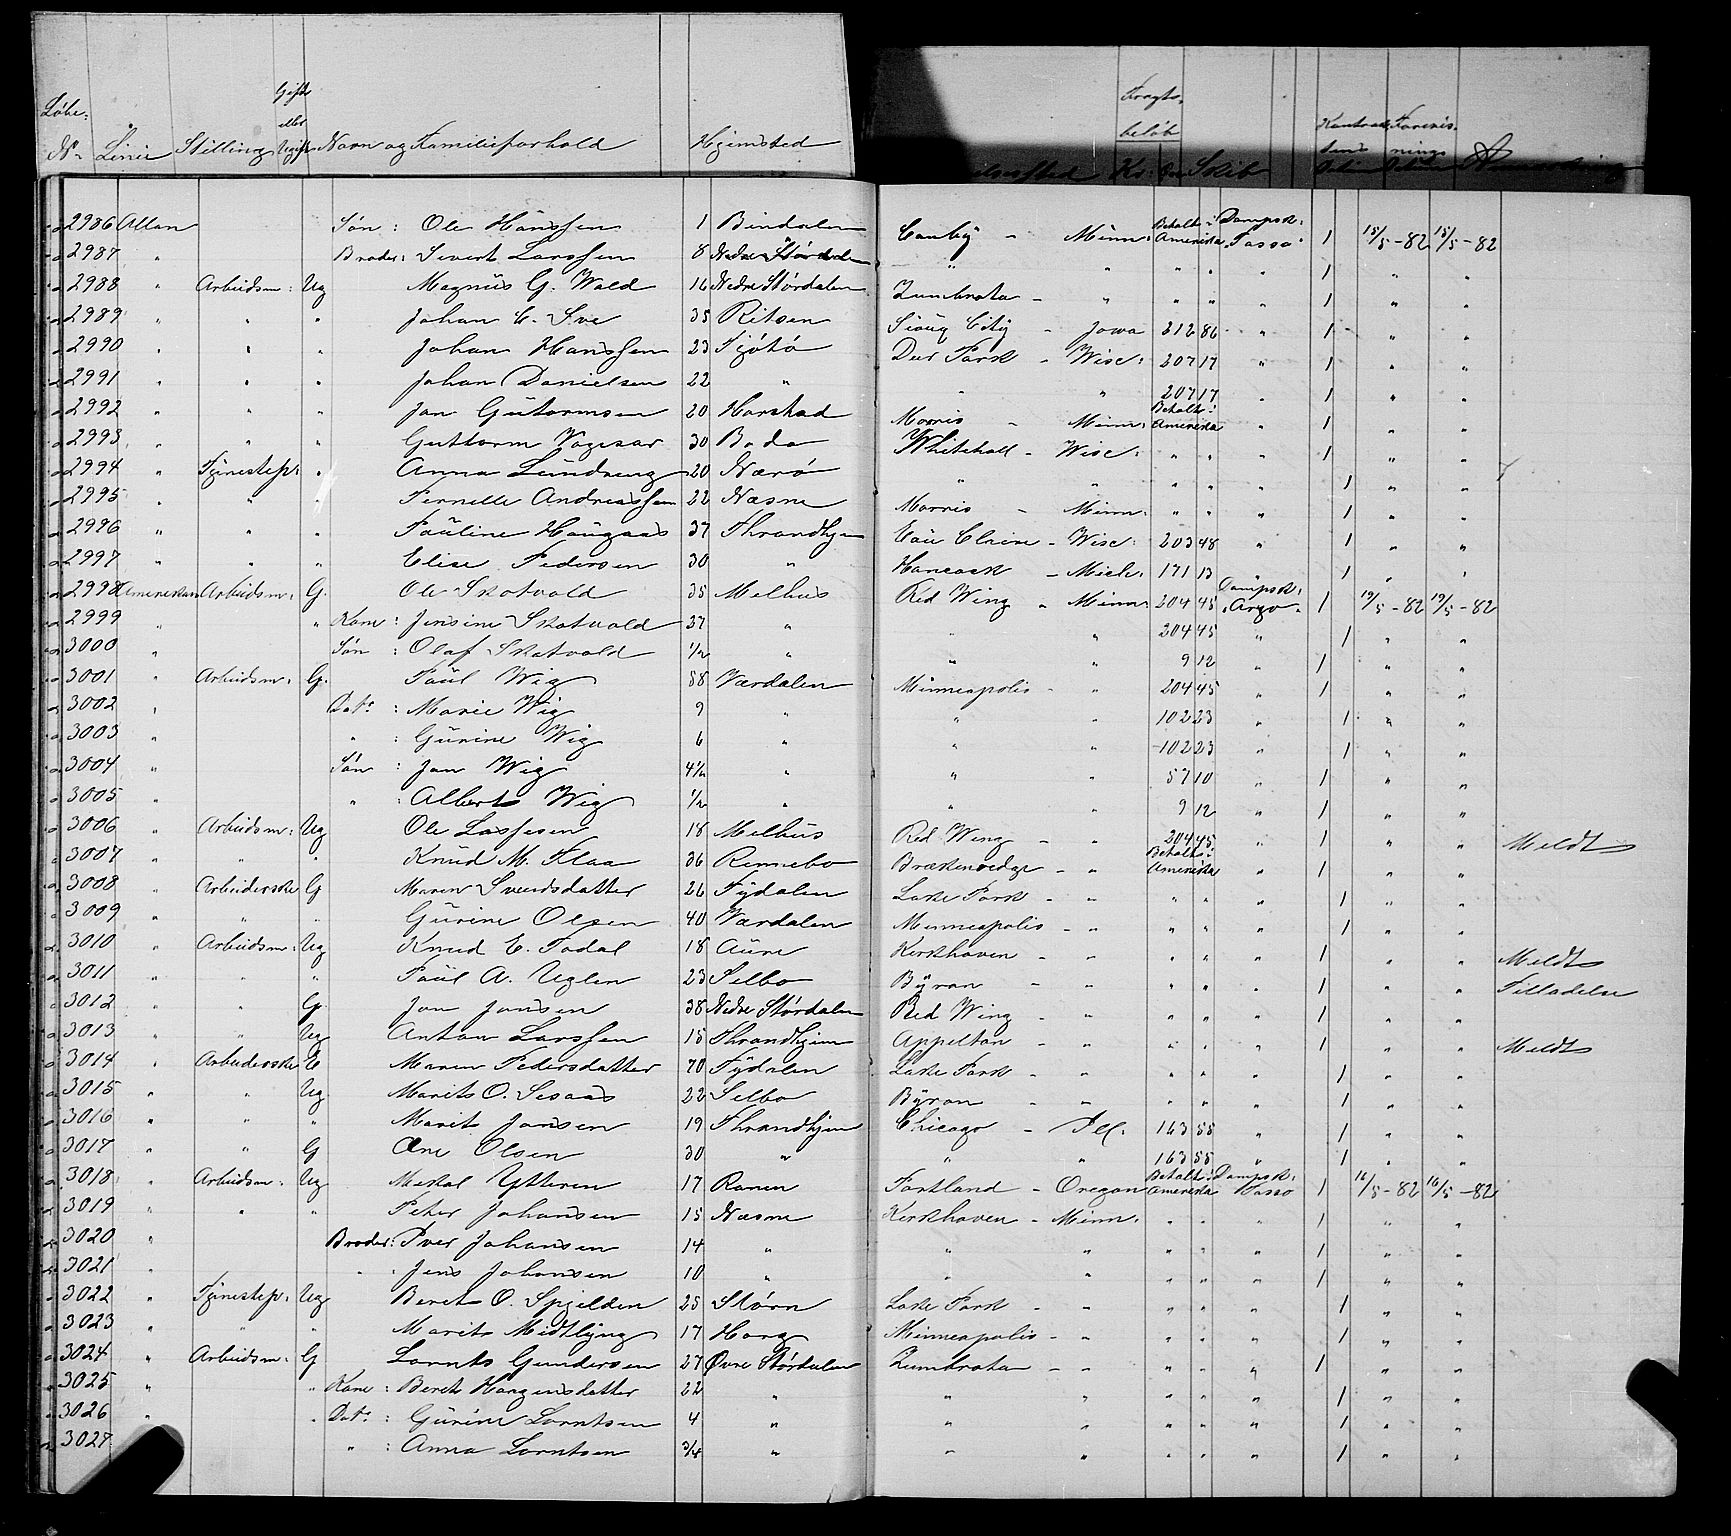 Løbe- Gift Fragt-
eller beløb Kontrac Forevis-
N- Linie Stilling Ugift Navn og Familieforhold Hjemsted Kr: Øre Skib nings
2986 Allan Søn: Ole Hanssen 1 Bindalen Canby - Minn: Betalt i Amerika Dampsk: "Tasso" 1 15/5-82 15/5-82
2987 " Broder: Sivert Larssen 8 Nedre Størdalen " " " " " 1 " "
2988 " Arbeidsm: Ug Magnus G. Wald 16 Nedre Størdalen Zumbrota - " " " " 1 " "
2989 " " " Johan C. Sve 35 Ritsen Sioux City - Jowa 212 86 " 1 " "
2990 " " " Johan Hanssen 23 Tjøtø Deer Park - Wisc: 207 17 " 1 " "
2991 " " " Johan Danielsen 22 " " " 207 17 " 1 " "
2992 " " " Jon Gutormsen 20 Harstad Morris - Minn: Betalt i Amerika " 1 " "
2993 " " " Guttorm Vagesar 30 Bodø Whitehall - Wisc: " " " 1 " "
2994 " Tjenestep: " Anna Lundreng 20 Nærø " " " " " 1 " "
2995 " " " Pernelle Andreassen 22 Næsne Morris - Minn: " " " 1 " "
2996 " " " Pauline Haugaas 37 Thrandhjem Eau Claire - Wisc: 203 48 " 1 " "
2997 " " " Elise Pedersen 30 " Hancock - Mich: 171 13 " 1 " "
2998 Amerikan Arbeidsm: G. Ole Skatvold 35 Melhus Red Wing " Minn: 204 45 Dampsk: "Argo" 1 19/5-82 19/5-82
2999 " " Kone: Jensine Skatvold 37 " " " 204 45 " 1 " "
3000 " Søn: Olaf Skatvold 1/2 " " " 9 12 " 1 " "
3001 " Arbeidsm: G. Paul Wig 38 Værdalen Minneapolis - " 204 45 " 1 " "
3002 " Datr: Marie Wig 9 " " " 102 23 " 1 " "
3003 " " : Gurine Wig 6 " " " 102 23 " 1 " "
3004 " Søn: Jon Wig 4 1/2 " " " 57 10 " 1 " "
3005 " " : Albert Wig 1/2 " " " 9 12 " 1 " "
3006 " Arbeidsm: Ug Ole Lassesen 18 Melhus Red Wing - " 204 45 " 1 " " Meldt
3007 " " " Knud M. Flaa 36 Rennebo Brækenredge - " Betalt i Amerika " 1 " "
3008 " Arbeiderske G Maren Svendsdatter 26 Tydalen Lake Park - " " " " 1 " "
3009 " " " Gurine Olsen 40 Værdalen Minneapolis - " " " " 1 " "
3010 " Arbeidsm: Ug Knud E. Todal 18 Aure Kerkhoven - " " " " 1 " " Meldt
3011 " " " Paul A. Uglen 23 Selbo Byron - " " " " 1 " " Tilladelse
3012 " " G. Jon Jonsen 38 Nedre Størdalen Red Wing - " " " " 1 " "
3013 " " Ug Anton Larssen 15 Thrandhjem Appelton - " " " " 1 " " Meldt
3014 " Arbeiderske E Maren Pedersdatter 70 Tydalen Lake Park - " " " " 1 " "
3015 " " Ug Marit O. Sesaas 22 Selbo Byron - " " " " 1 " "
3016 " " " Marit Jonsen 19 Thrandhjem Chicago - Ill. 163 55 " 1 " "
3017 " " G Ane Olsen 30 " " " 163 55 " 1 " "
3018 " Arbeidsm: Ug Mekal Ytteren 17 Ranen Portland - Oregon Betalt i Amerika Dampsk: Tasso 1 16/5-82 16/5-82
3019 " " " Peter Johansen 15 Næsne Kerkhoven - Minn. " " " 1 " "
3020 " Broder: Iver Johansen 14 " " " " " " 1 " "
3021 " " " Jens Johansen 10 " " " " " " 1 " "
3022 " Tjenestep: Ug Beret O. Spjelden 25 Støren Lake Park - " " " " 1 " "
3023 " " " Marit Midtlyng 17 Horg Minneapolis - " " " " 1 " "
3024 " Arbeidsm: G Lornts Gundersen 27 Øvre Størdalen Zumbrota - " " " " 1 " "
3025 " " Kone: Beret Hansensdatter 22 " " " " " " 1 " "
3026 " " Datr: Gurine Lorntsen 4 " " " " " " 1 " "
3027 " : Anna Lorntsen 3/4 " " " " " " 1 " "